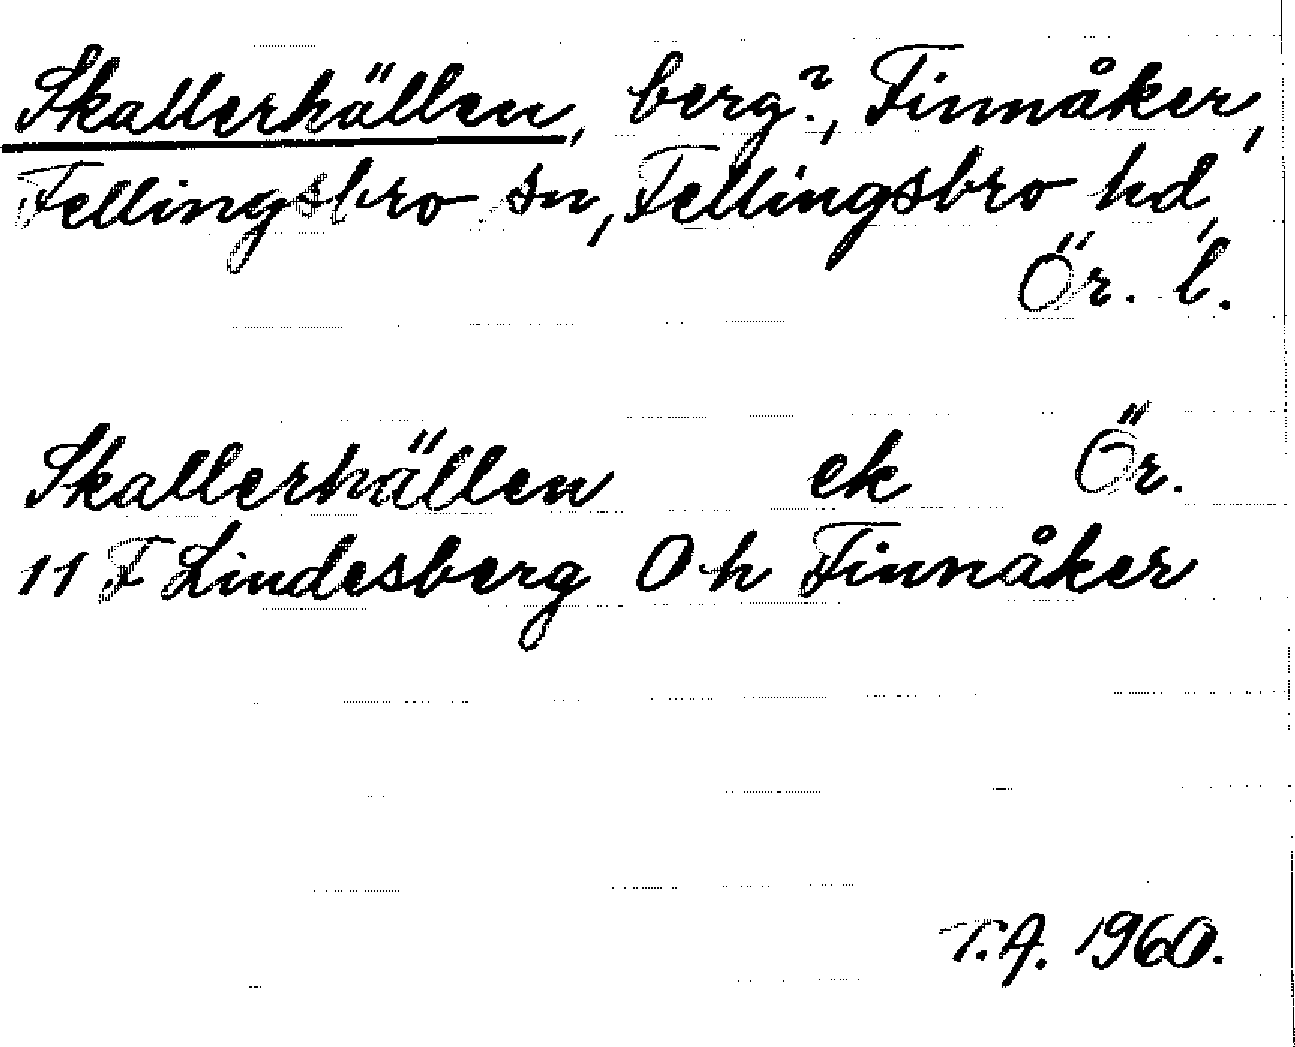 Skallerhällen, berg?, Finnåker,
Fellingsbro sn, Fellingsbro hd,
Ör. l.
Skallerhällen ek Ör.
11 F Lindesberg O h Finnåker
T.A. 1960.